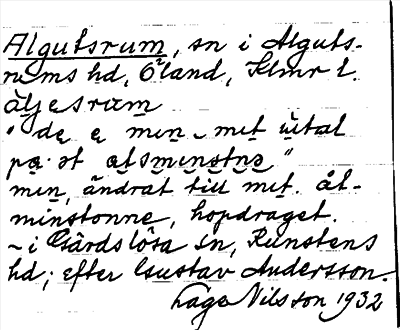 Algutsrum, sn i Alguts-
rums hd, Öland, Klmr l.
äljesrum
"de e min, mit uttal
på ot atsminstne"
min, ändrat till mit. åt-
minstonne, hopdraget.
~ i Gärdslösa sn, Runstens
hd; efter Gustav Andersson.
Lage Nilsson 1932